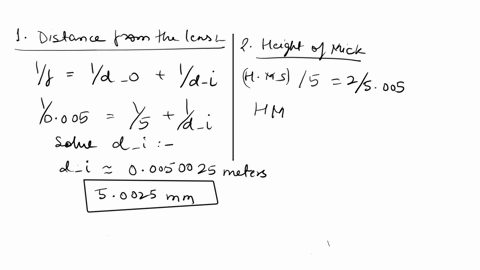 1. Distance from the lens:
1/f = 1/d_o + 1/d_i
1/0.005 = 1/5 + 1/d_i
Solve d_i :-
d_i ≈ 0.0050025 meters
5.0025 mm
2. Height of Mick
(H.MS) / 5 = 2/5.005
HM